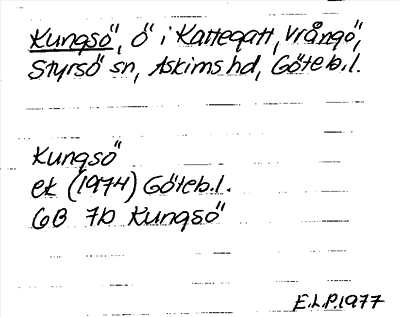 Kungsö, ö i Kattegatt, Vrångö,
Styrsö sn, Askims hd, Göteb.l.
Kungsö
ek (1974) Göteb.l.
6B 7b Kungsö
E.L.P.1977